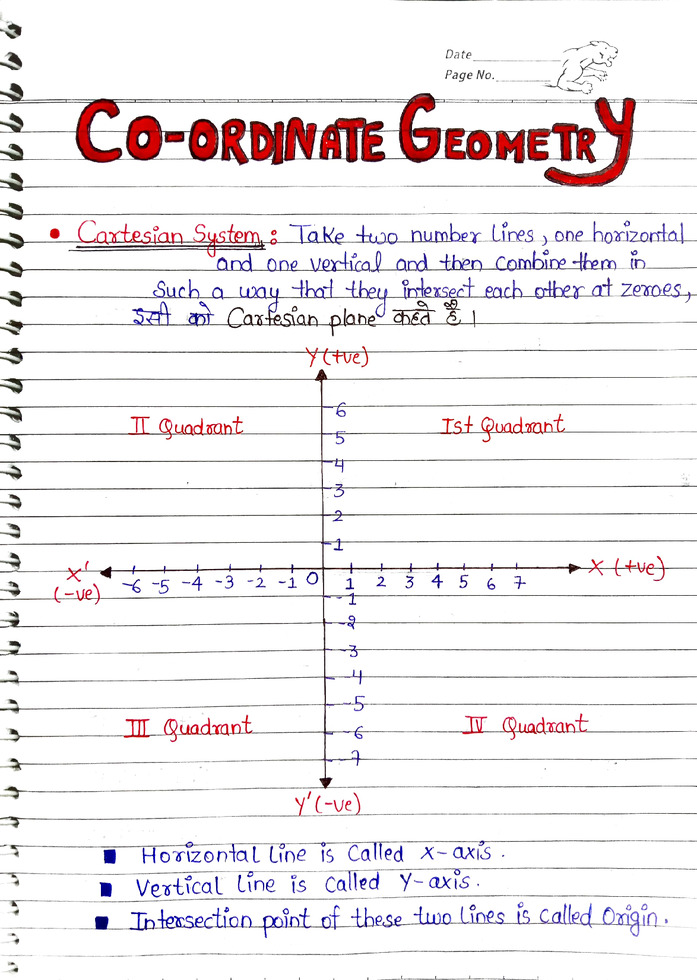 Date
Page No.
CO-ORDINATE GEOMETRY
• Cartesian System : Take two number lines, one horizontal
and one vertical and then combine them in
Such a way that they intersect each other at zeroes,
इसी को Cartesian plane कहते हैं।
Y (+ve)
II Quadrant
Ist Quadrant
6
5
4
3
2
1
X' (-ve)
-6 -5 -4 -3 -2 -1 0 1 2 3 4 5 6 7
X (+ve)
-1
-2
-3
-4
-5
-6
-7
III Quadrant
IV Quadrant
Y' (-ve)
■ Horizontal line is Called x-axis.
■ Vertical line is Called Y-axis.
■ Intersection point of these two lines is Called Origin.